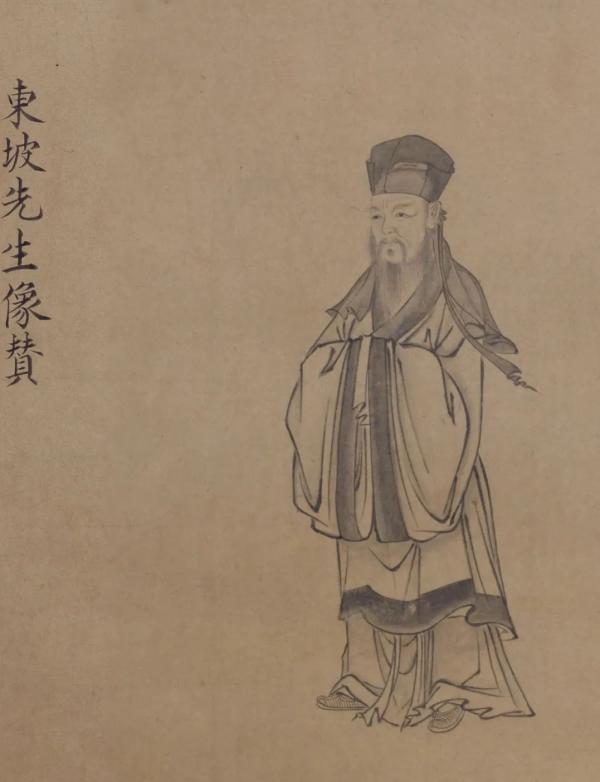 東坡先生像賛